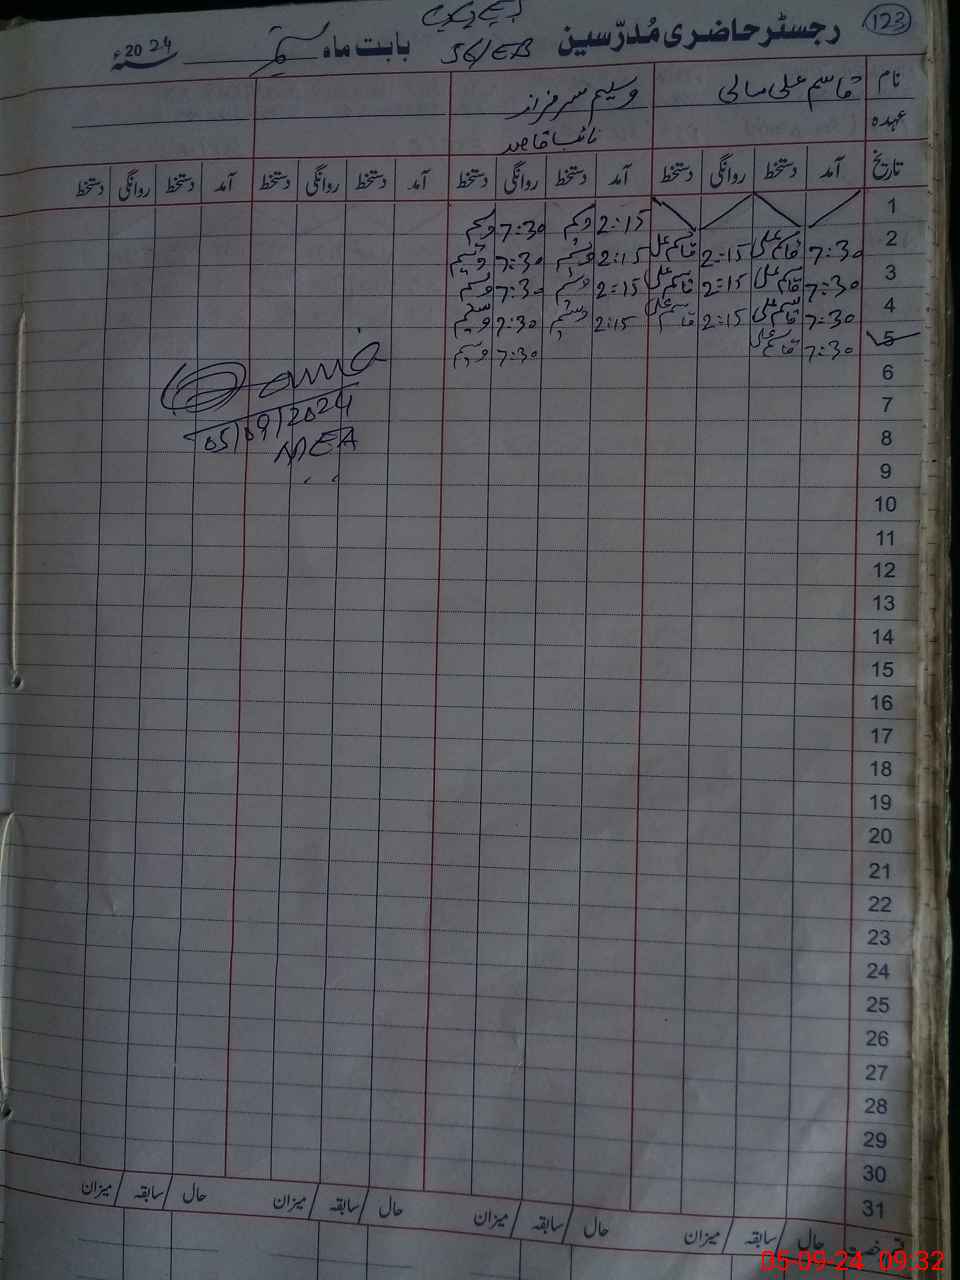 123
رجسٹر حاضری مُدرّسین 56/EB بابت ماہ ستمبر 2024ء
نام قاسم علی مالی وسیم سرفراز
عہدہ نائب قاصد
تاریخ آمد دستخط روانگی دستخط آمد دستخط روانگی دستخط آمد دستخط روانگی دستخط آمد دستخط روانگی دستخط
1 2:15 وسیم 7:30 وسیم
2 7:30 قاسم علی 2:15 قاسم علی 2:15 وسیم 7:30 وسیم
3 7:30 قاسم علی 2:15 قاسم علی 2:15 وسیم 7:30 وسیم
4 7:30 قاسم علی 2:15 قاسم علی 2:15 وسیم 7:30 وسیم
5 7:30 قاسم علی 7:30 وسیم
6
05/09/2024
7
MEA
8
9
10
11
12
13
14
15
16
17
18
19
20
21
22
23
24
25
26
27
28
29
30
31
حال سابقہ میزان حال سابقہ میزان حال سابقہ میزان حال سابقہ میزان
05-09-24 09:32